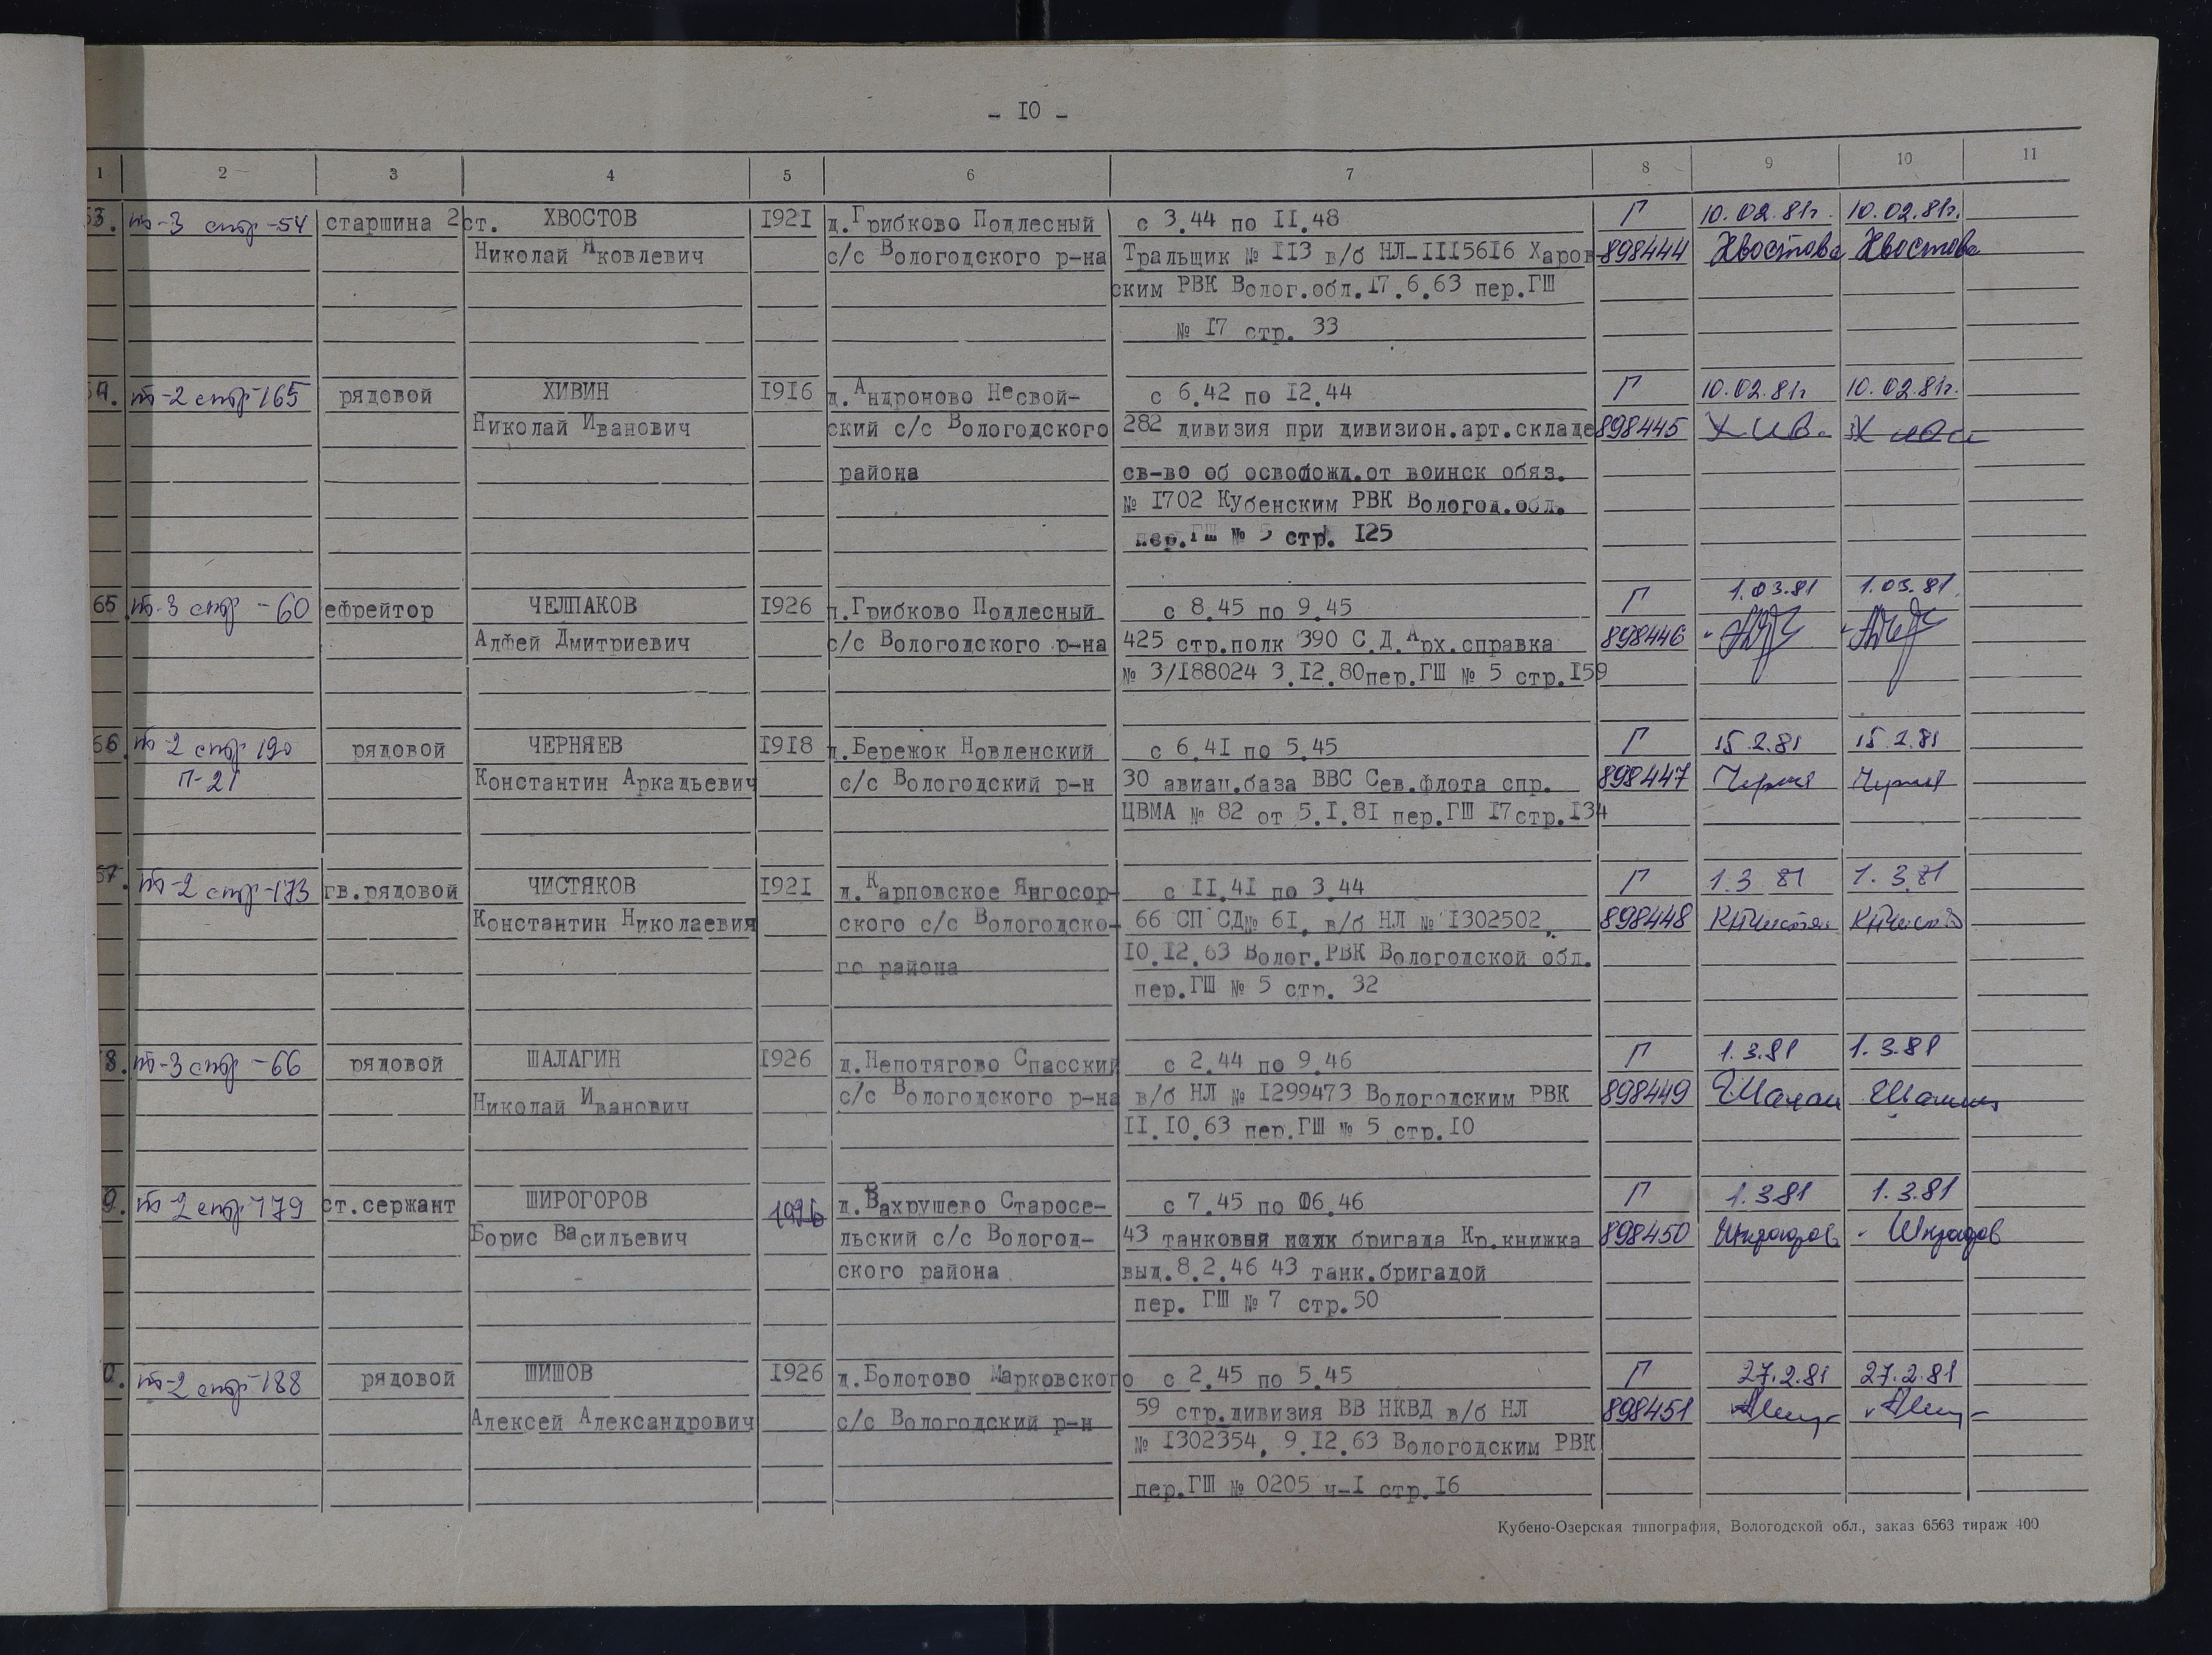 - 10 -
1 2 3 4 5 6 7 8 9 10 11
63. т-3 стр-54 старшина 2 ст. ХВОСТОВ 1921 д.Грибково Подлесный с 3.44 по 11.48 Г 10.02.81г. 10.02.81г.
Николай Яковлевич с/с Вологодского р-на Тральщик № 113 в/б НЛ-1115616 Харов- 898444 Хвостова Хвостова
ским РВК Волог.обл.17.6.63 пер.ГШ
№ 17 стр. 33
64. т-2 стр-165 рядовой ХИВИН 1916 д.Андроново Несвой- с 6.42 по 12.44 Г 10.02.81г 10.02.81г.
Николай Иванович ский с/с Вологодского 282 дивизия при дивизион.арт.складе 898445 Хив.
района св-во об освобожд.от воинск обяз.
№ 1702 Кубенским РВК Вологод.обл.
пер.ГШ № 5 стр. 125
65. т-3 стр-60 ефрейтор ЧЕЛПАКОВ 1926 д.Грибково Подлесный с 8.45 по 9.45 Г 1.03.81 1.03.81.
Алфей Дмитриевич с/с Вологодского р-на 425 стр.полк 390 С.Д.Арх.справка 898446
№ 3/188024 3.12.80пер.ГШ № 5 стр.159
66. т-2 стр 190 рядовой ЧЕРНЯЕВ 1918 д.Бережок Новленский с 6.41 по 5.45 Г 15.2.81 15.2.81
П-21 Константин Аркадьевич с/с Вологодский р-н 30 авиац.база ВВС Сев.флота спр. 898447 Черня Черня
ЦВМА № 82 от 5.1.81 пер.ГШ 17стр.134
67. т-2 стр-173 гв.рядовой ЧИСТЯКОВ 1921 д.Карповское Янгосор- с 11.41 по 3.44 Г 1.3 81 1.3.81
Константин Николаевич ского с/с Вологодско- 66 СП СД№ 61, в/б НЛ № 1302502, 898448 КНЧистя
го района 10.12.63 Волог.РВК Вологодской обл.
пер.ГШ № 5 стр. 32
8. т-3 стр-66 рядовой ШАЛАГИН 1926 д.Непотягово Спасский с 2.44 по 9.46 Г 1.3.81 1.3.81
Николай Иванович с/с Вологодского р-на в/б НЛ № 1299473 Вологодским РВК 898449
11.10.63 пер.ГШ № 5 стр.10
9. т-2 стр 179 ст.сержант ШИРОГОРОВ 1926 д.Вахрушево Старосе- с 7.45 по 06.46 Г 1.3.81 1.3.81
Борис Васильевич льский с/с Вологод- 43 танковая полк бригада Кр.книжка 898450
ского района выд.8.2.46 43 танк.бригадой
пер. ГШ № 7 стр.50
0. т-2 стр-188 рядовой ШИШОВ 1926 д.Болотово Марковского с 2.45 по 5.45 Г 27.2.81 27.2.81
Алексей Александрович с/с Вологодский р-н 59 стр.дивизия ВВ НКВД в/б НЛ 898451
№ 1302354, 9.12.63 Вологодским РВК
пер.ГШ № 0205 ч-1 стр.16
Кубено-Озерская типография, Вологодской обл., заказ 6563 тираж 400